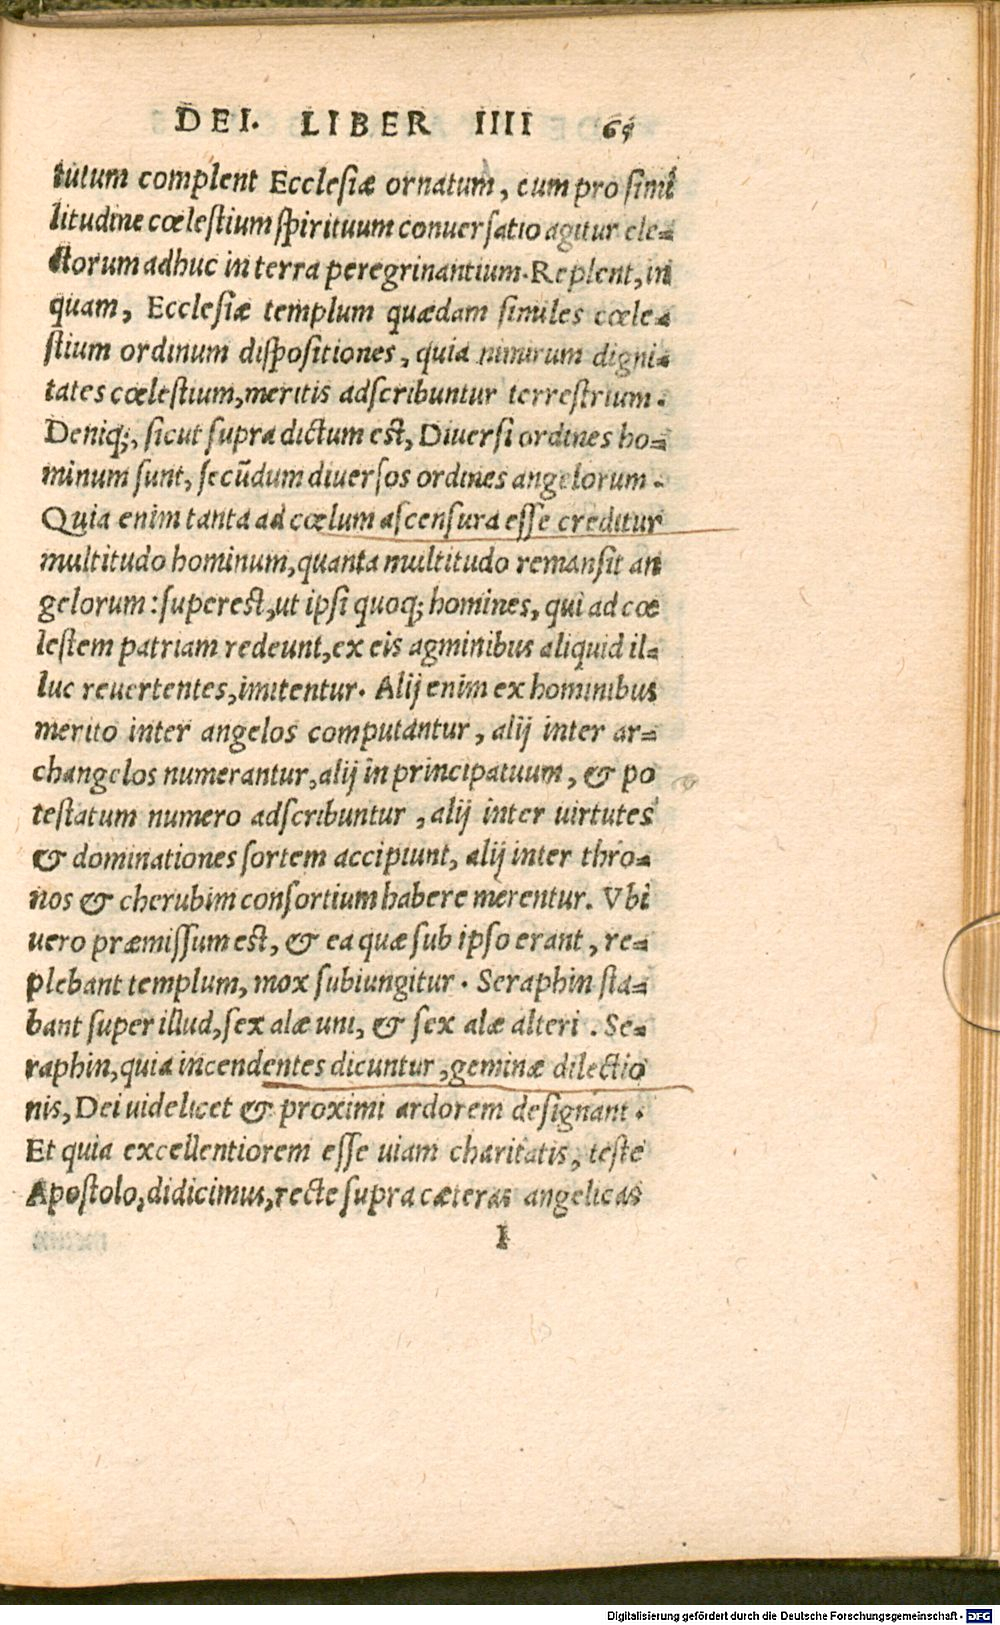 DEI. LIBER IIII 65
tutum complent Ecclesiæ ornatum, cum pro simi
litudine cœlestium spirituum conuersatio agitur ele=
ctorum adhuc in terra peregrinantium. Replent, in
quam, Ecclesiæ templum quædam similes cœle=
stium ordinum dispositiones, quia nimirum digni=
tates cœlestium, meritis adscribuntur terrestrium.
Deniq;, sicut supra dictum est, Diuersi ordines ho=
minum sunt, secūdum diuersos ordines angelorum.
Quia enim tanta ad cœlum ascensura esse creditur
multitudo hominum, quanta multitudo remansit an
gelorum: superest, ut ipsi quoq; homines, qui ad cœ
lestem patriam redeunt, ex eis agminibus aliquid il=
luc reuertentes, imitentur. Alij enim ex hominibus
merito inter angelos computantur, alij inter ar=
changelos numerantur, alij in principatuum, & po
testatum numero adscribuntur, alij inter uirtutes
& dominationes sortem accipiunt, alij inter thro=
nos & cherubim consortium habere merentur. Vbi
uero præmissum est, & ea quæ sub ipso erant, re=
plebant templum, mox subiungitur. Seraphin sta=
bant super illud, sex alæ uni, & sex alæ alteri. Se=
raphin, quia incendentes dicuntur, geminæ dilectio
nis, Dei uidelicet & proximi ardorem designant.
Et quia excellentiorem esse uiam charitatis, teste
Apostolo, didicimus, recte supra cæteras angelicas
I
Digitalisierung gefördert durch die Deutsche Forschungsgemeinschaft - DFG